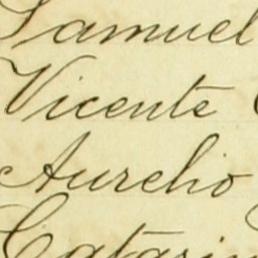 Samuel
Vicente
Aurelio
Catarin